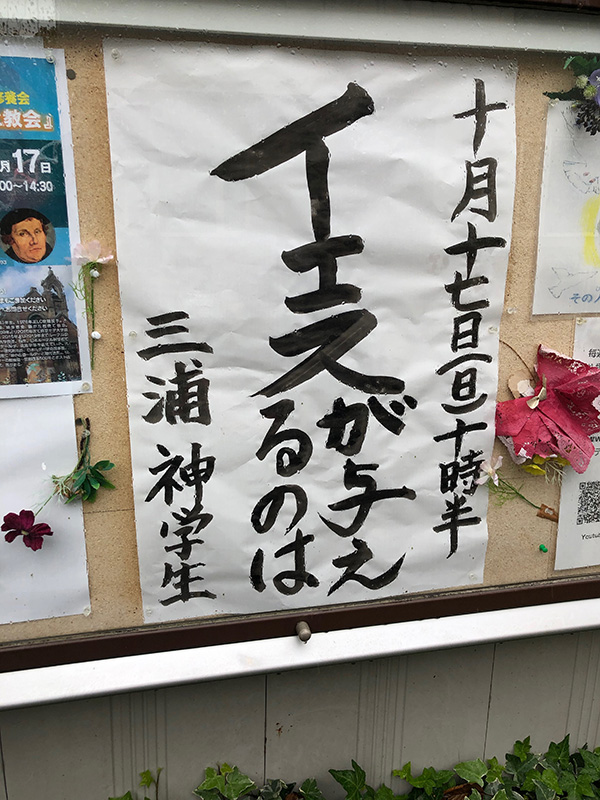 十月十七日(日)十時半
イエスが与え
るのは
三浦 神学生
修養会
教会』
月17日
00～14:30
その人
Youtu